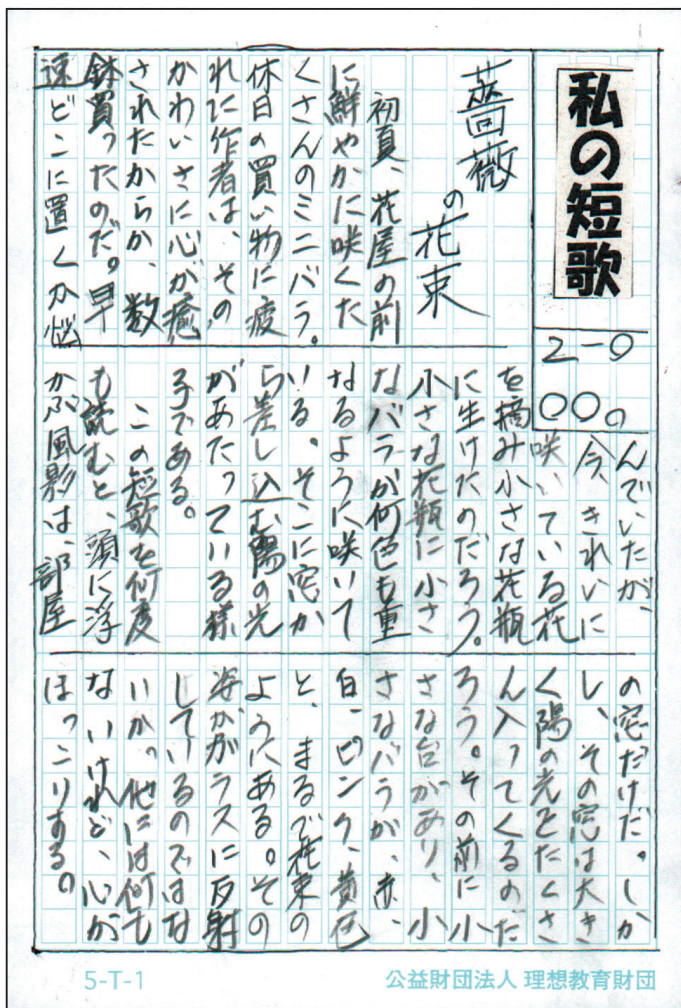 私の短歌
2-9
〇〇の
薔薇の花束
初夏、花屋の前
に鮮やかに咲くた
くさんのミニバラ。
休日の買い物に疲
れた作者は、その
かわいさに心が癒
されたからか、数
鉢買ったのだ。早
速どこに置くか悩
んでいたが、
今、きれいに
咲いている花
を摘み小さな花瓶
に生けたのだろう。
小さな花瓶に小さ
なバラが何色も重
なるように咲いて
いる。そこに窓か
ら差し込む陽の光
があたっている様
子である。
この短歌を何度
も読むと、頭に浮
かぶ風影は、部屋
の窓だけだ。しか
し、その窓は大き
く陽の光をたくさ
ん入ってくるのだ
ろう。その前に小
さな台があり、小
さなバラが、赤、
白、ピンク、黄色
と、まるで花束の
ようにある。その
姿がガラスに反射
しているのではな
いか。他には何も
ないけれど、心が
ほっこりする。
5-T-1
公益財団法人 理想教育財団